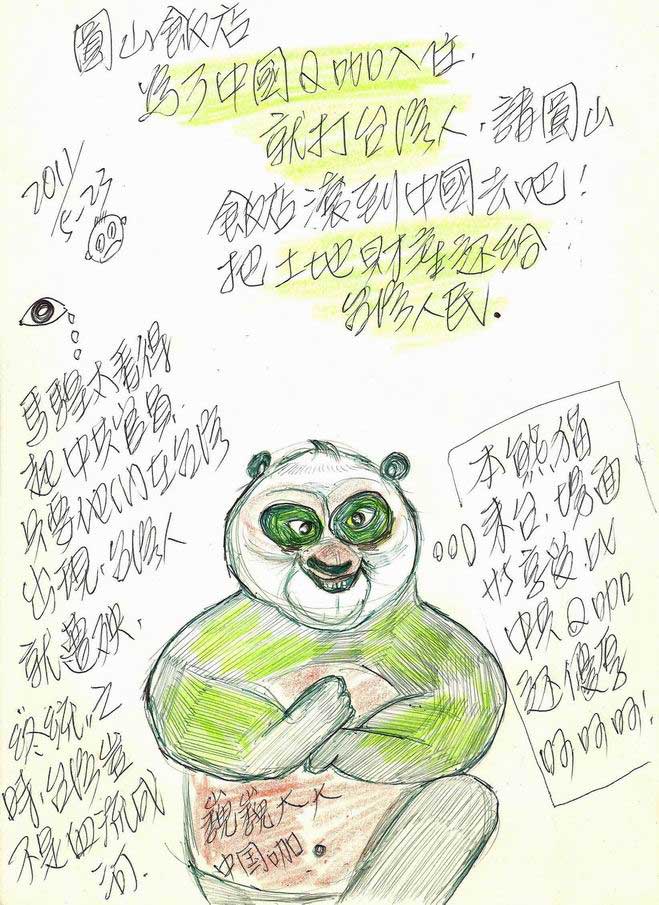 圓山飯店
為了中國Q000入住.
就打台灣人,請圓山
飯店滾到中國去吧!
把土地財產还給
台灣人民.
2011/5-23
馬騜太看得
起中共官員.
只要他們在台灣
出現,台灣人
就遭殃.
"終統"之
時,台灣豈
不是血流成
河.
本熊貓
來台,場面
中共Q000
还優厚
呵呵呵!
巍巍大大
中国咖.